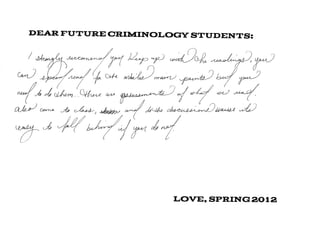 DEAR FUTURE CRIMINOLOGY STUDENTS:
I strongly recommend you keep up with the readings, you
can speed read to take the main points but you
need to do them. There are assessments of what we read.
Also come to class, and to the discussions cause its
easy to fall behind if you do not
LOVE, SPRING 2012